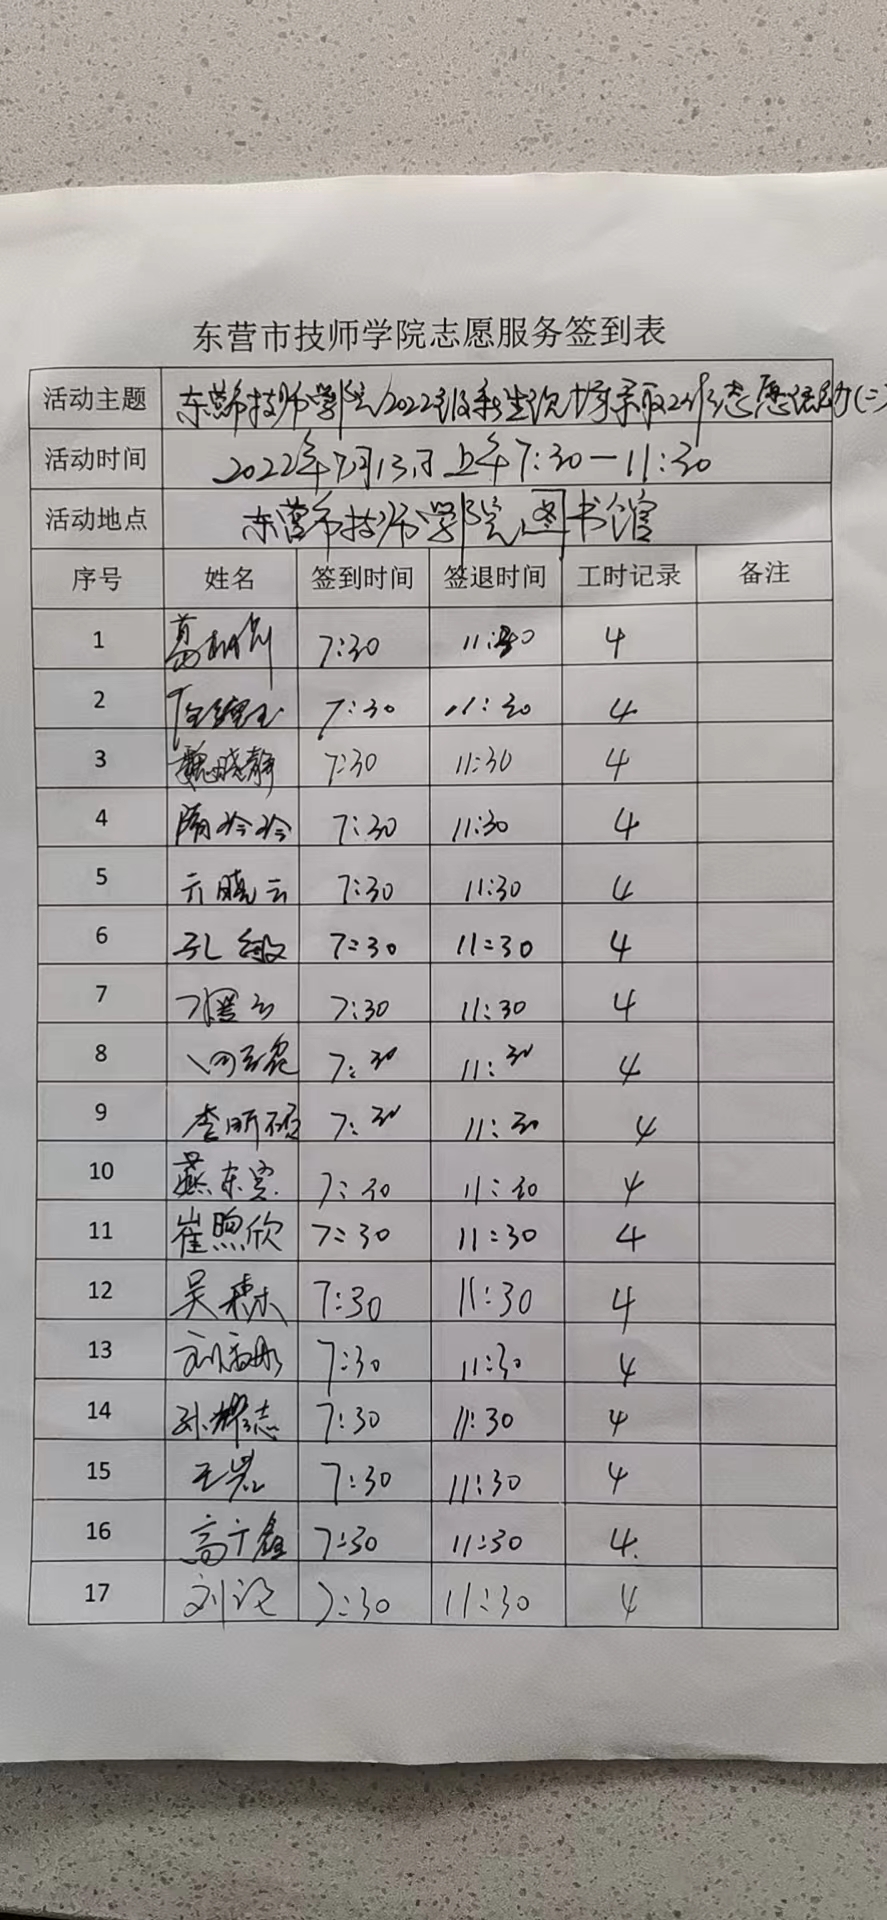 东营市技师学院志愿服务签到表
活动主题 东营市技师学院2022级新生现场录取工作志愿活动(二)
活动时间 2022年7月13日上午7:30-11:30
活动地点 东营市技师学院图书馆
序号 姓名 签到时间 签退时间 工时记录 备注
1 葛 7:30 11:30 4
2 7:30 11:30 4
3 魏晓静 7:30 11:30 4
4 隋玲玲 7:30 11:30 4
5 亓晓云 7:30 11:30 4
6 孔敏 7:30 11:30 4
7 7:30 11:30 4
8 7:30 11:30 4
9 李昕硕 7:30 11:30 4
10 燕东 7:30 11:30 4
11 崔煦欣 7:30 11:30 4
12 吴 7:30 11:30 4
13 刘 7:30 11:30 4
14 孙耀志 7:30 11:30 4
15 王 7:30 11:30 4
16 高广鑫 7:30 11:30 4.
17 刘 7:30 11:30 4